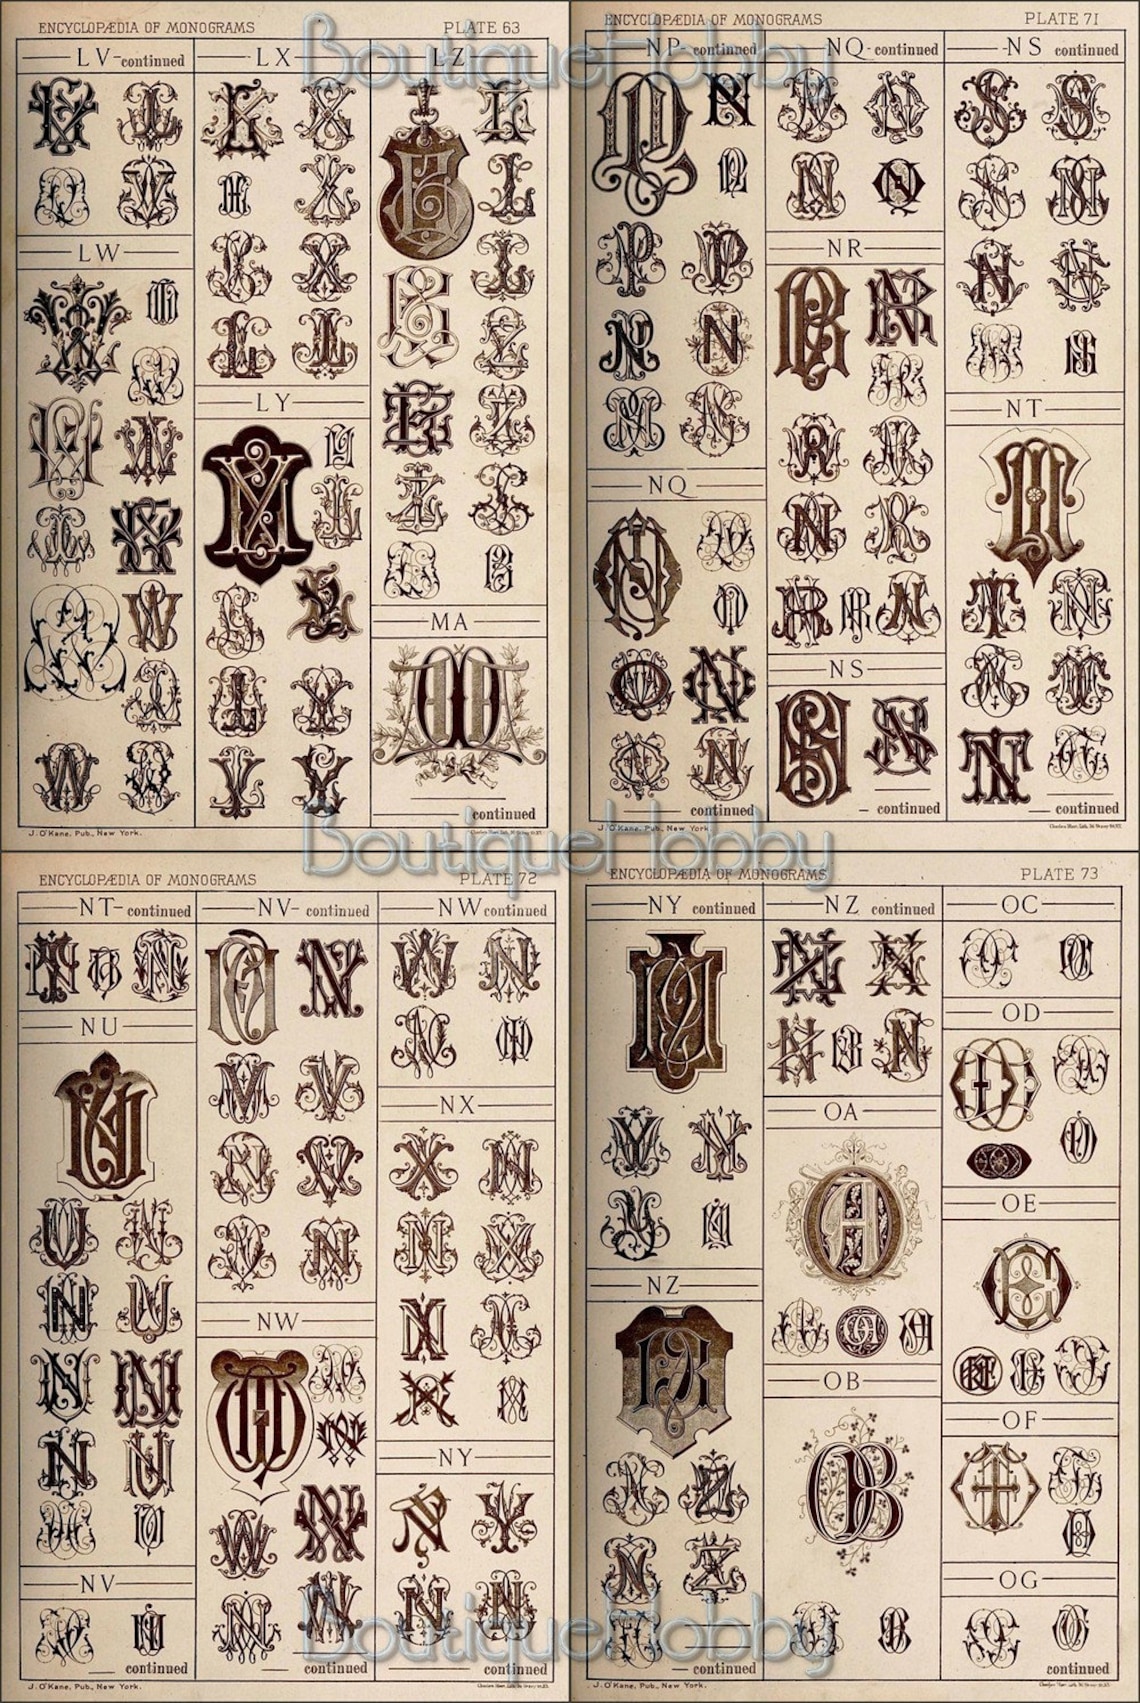 ENCYCLOPÆDIA OF MONOGRAMS
PLATE 63
LV- continued
LX
LZ
LW
LY
MA
continued
J. O'Kane, Pub., New York.
ENCYCLOPÆDIA OF MONOGRAMS
PLATE 71
NP- continued
NQ- continued
NS continued
NR
NT
NQ
NS
continued
continued
continued
J. O'Kane, Pub., New York.
BoutiqueHobby
BoutiqueHobby
ENCYCLOPÆDIA OF MONOGRAMS
PLATE 72
NT- continued
NV- continued
NW continued
NU
NX
NW
NY
NV
continued
continued
continued
J. O'Kane, Pub., New York.
ENCYCLOPÆDIA OF MONOGRAMS
PLATE 73
NY continued
NZ continued
OC
OD
OA
OE
NZ
OB
OF
OG
continued
continued
J. O'Kane, Pub., New York.
BoutiqueHobby